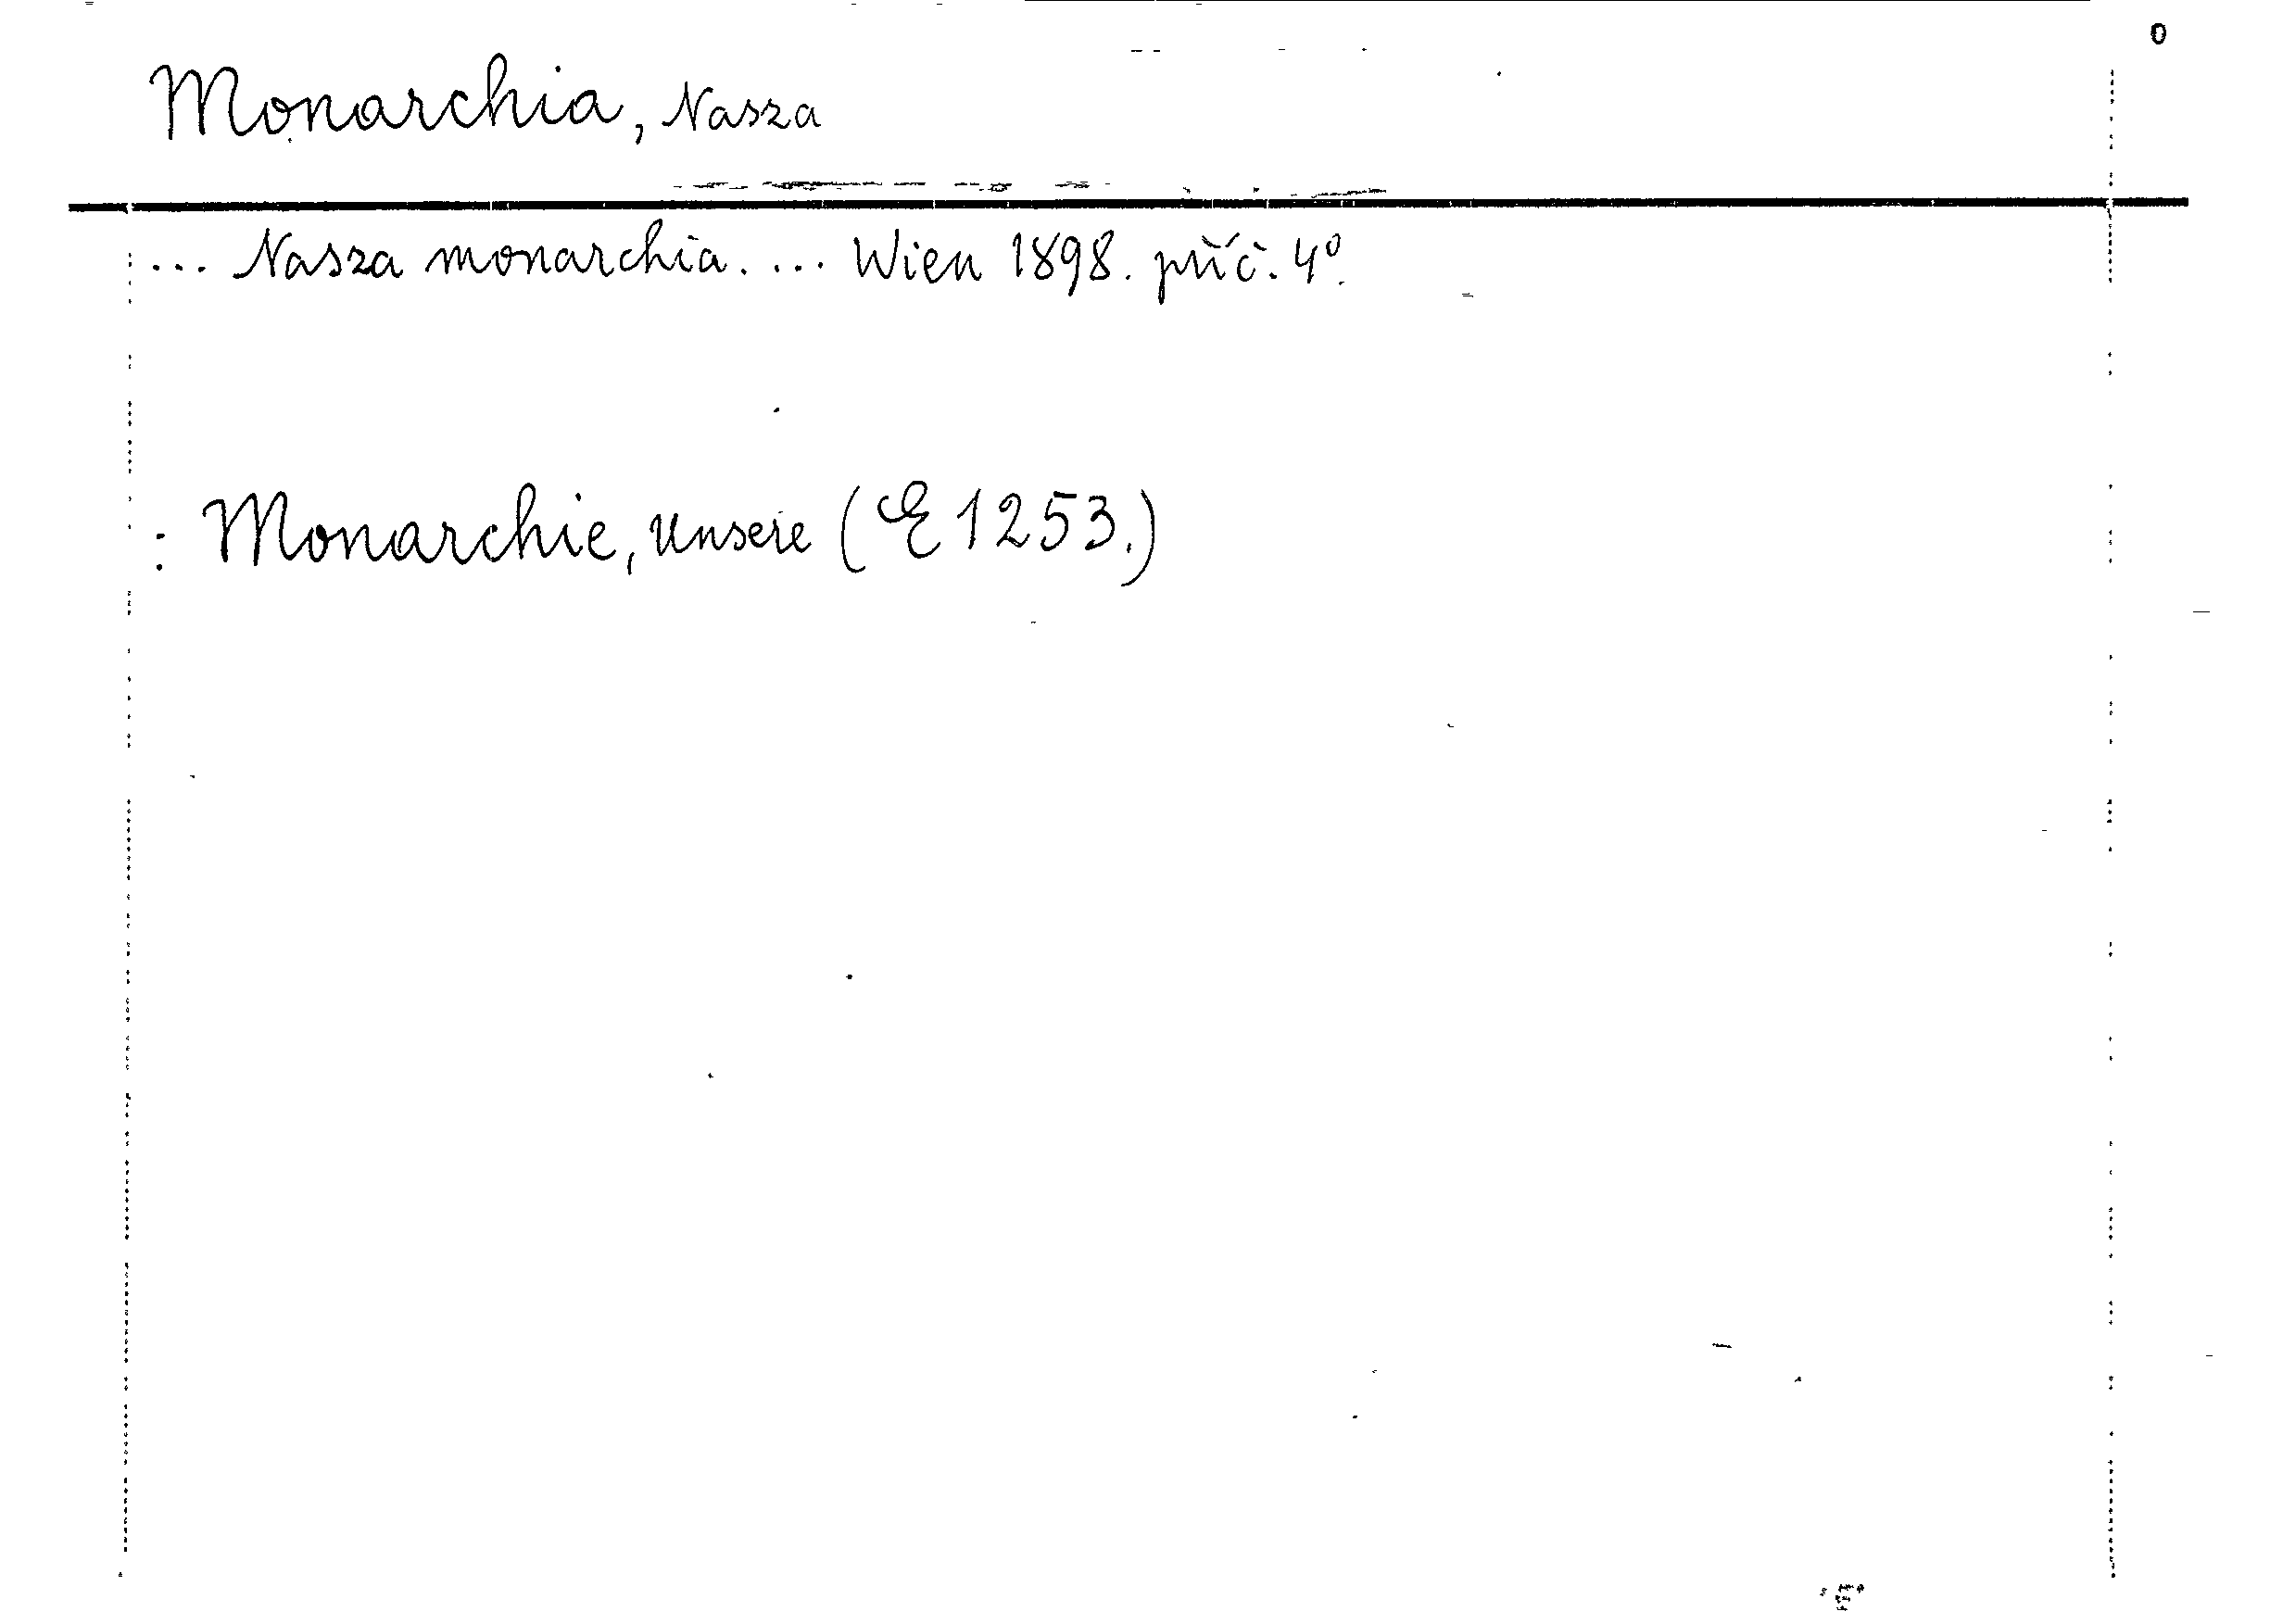 0
Monarchia, Nasza
... Nasza monarchia. ... Wien 1898. příč. 4º.
: Monarchie, Unsere (E 1253.)